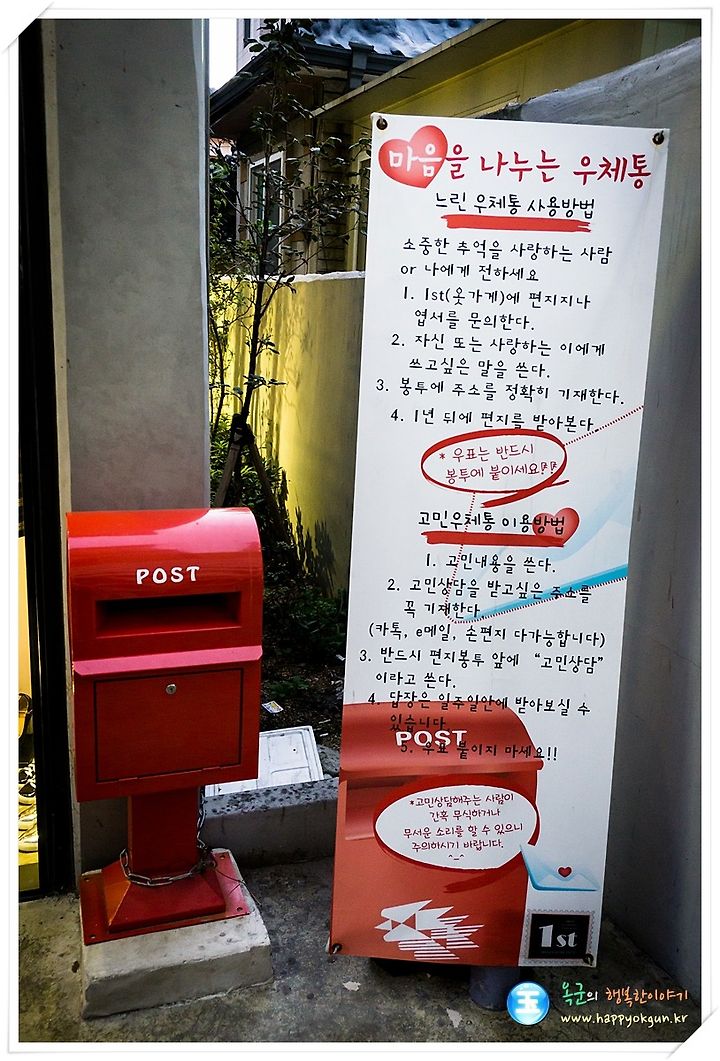 마음을 나누는 우체통
느린 우체통 사용방법
소중한 추억을 사랑하는 사람
or 나에게 전하세요
1. 1st(옷가게)에 편지지나
엽서를 문의한다.
2. 자신 또는 사랑하는 이에게
쓰고싶은 말을 쓴다.
3. 봉투에 주소를 정확히 기재한다.
4. 1년 뒤에 편지를 받아본다
* 우표는 반드시
봉투에 붙이세요!!
고민우체통 이용방법
1. 고민내용을 쓴다.
2. 고민상담을 받고싶은 주소를
꼭 기재한다
(카톡, e메일, 손편지 다가능합니다)
3. 반드시 편지봉투 앞에 “고민상담”
이라고 쓴다.
4. 답장은 일주일안에 받아보실 수
있습니다
5. 우표 붙이지 마세요!!
POST
POST
*고민상담해주는 사람이
간혹 무식하거나
무서운 소리를 할 수 있으니
주의하시기 바랍니다.
^_^
1st
玉 옥군의 행복한이야기
www.happyokgun.kr